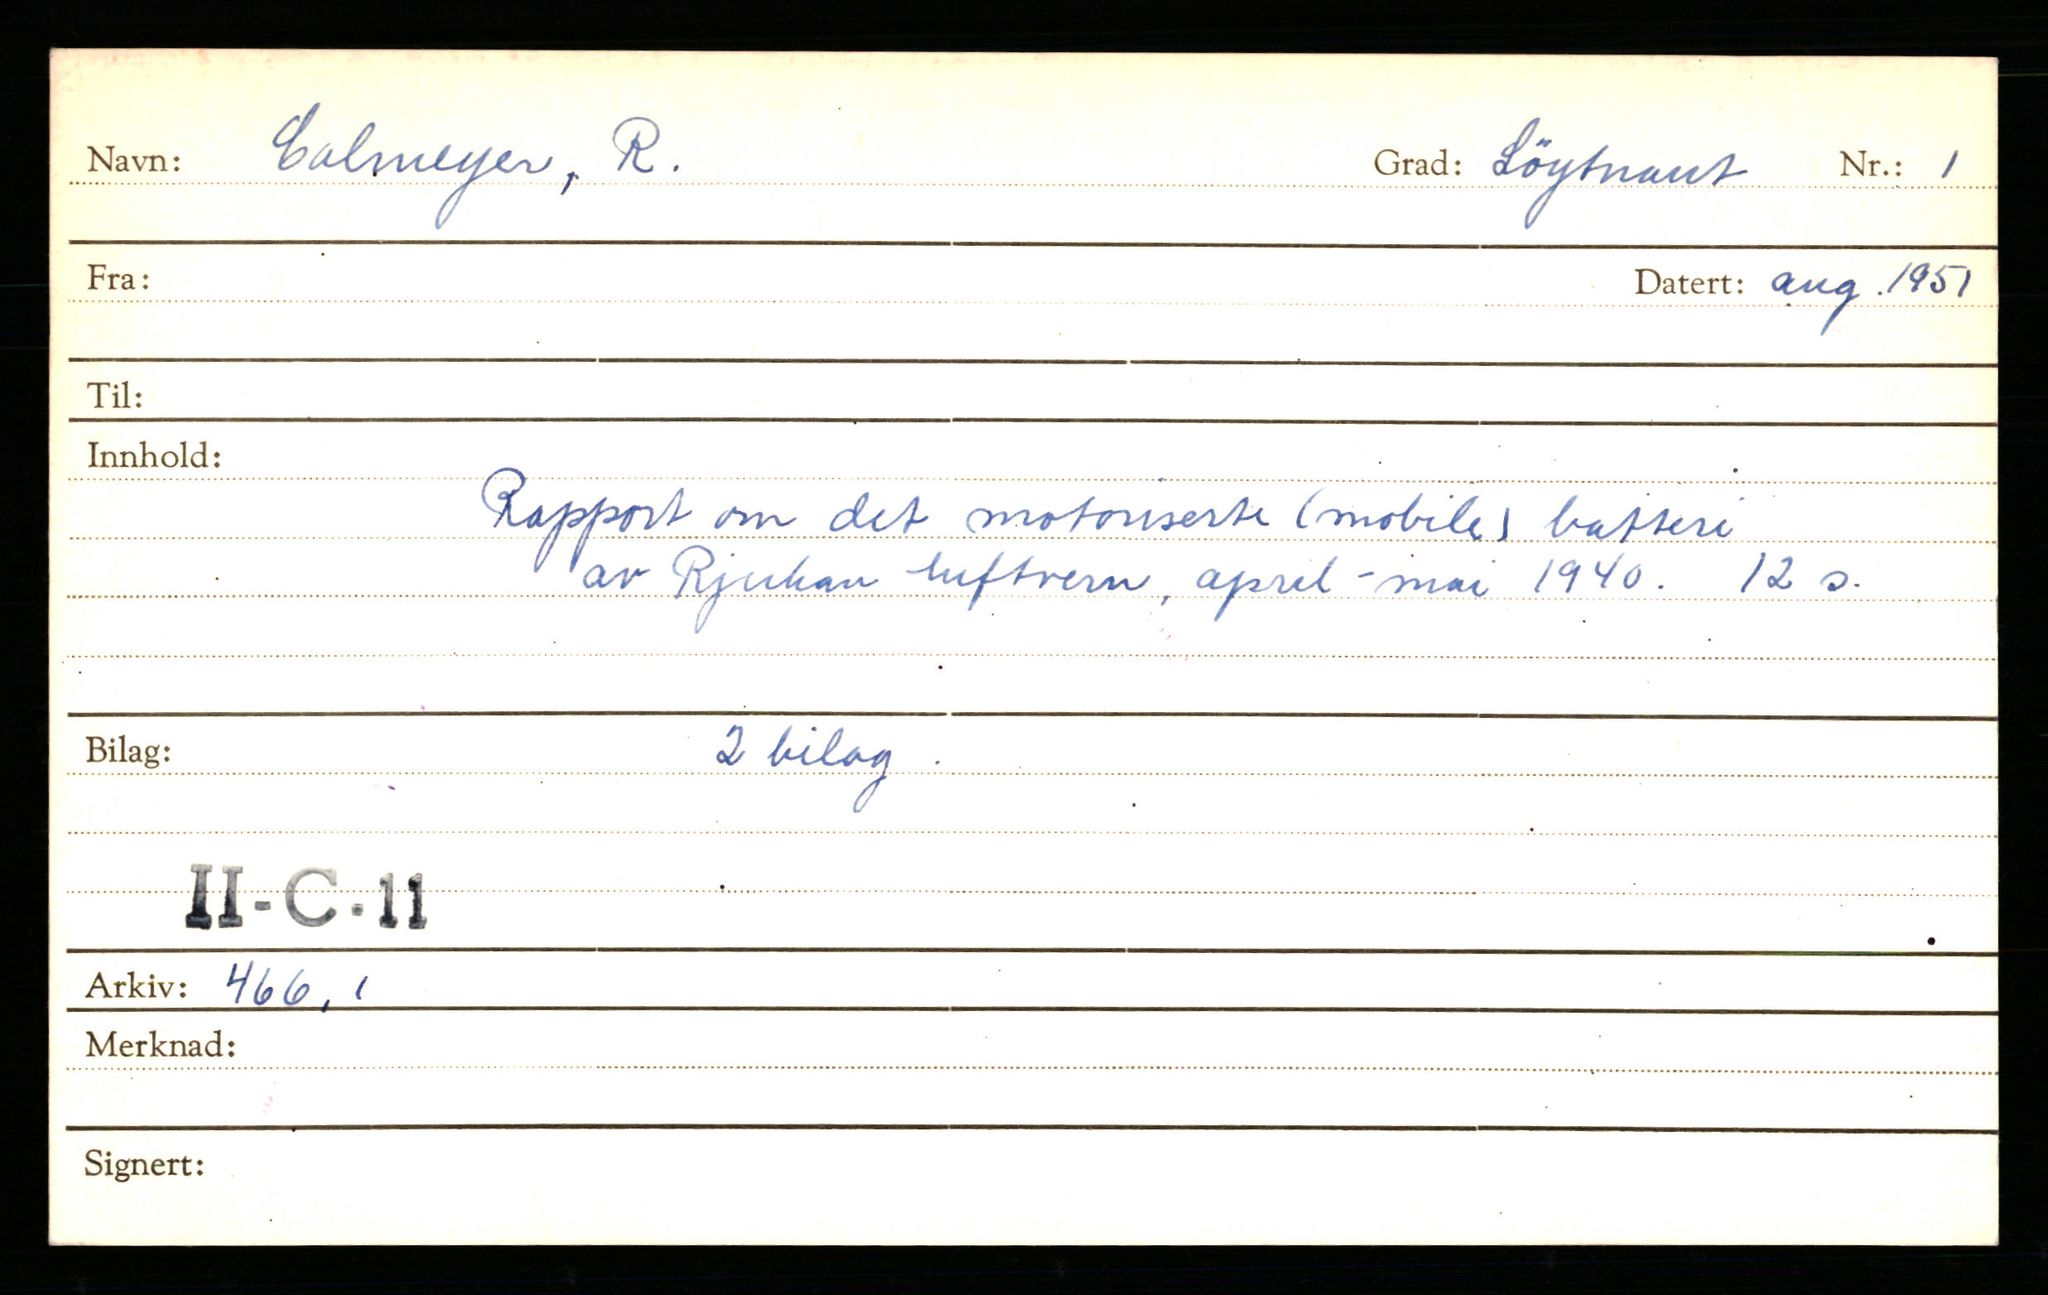 Navn: Calmeyer, R. Grad: Löytnant Nr.: 1
Fra: Datert: aug. 1951
Til:
Innhold:
Rapport om det motoriserte (mobile) batteri
av Rjukan luftvern, april - mai 1940. 12 s.
Bilag: 2 bilag.
II-C-11
Arkiv: 466,1
Merknad:
Signert: